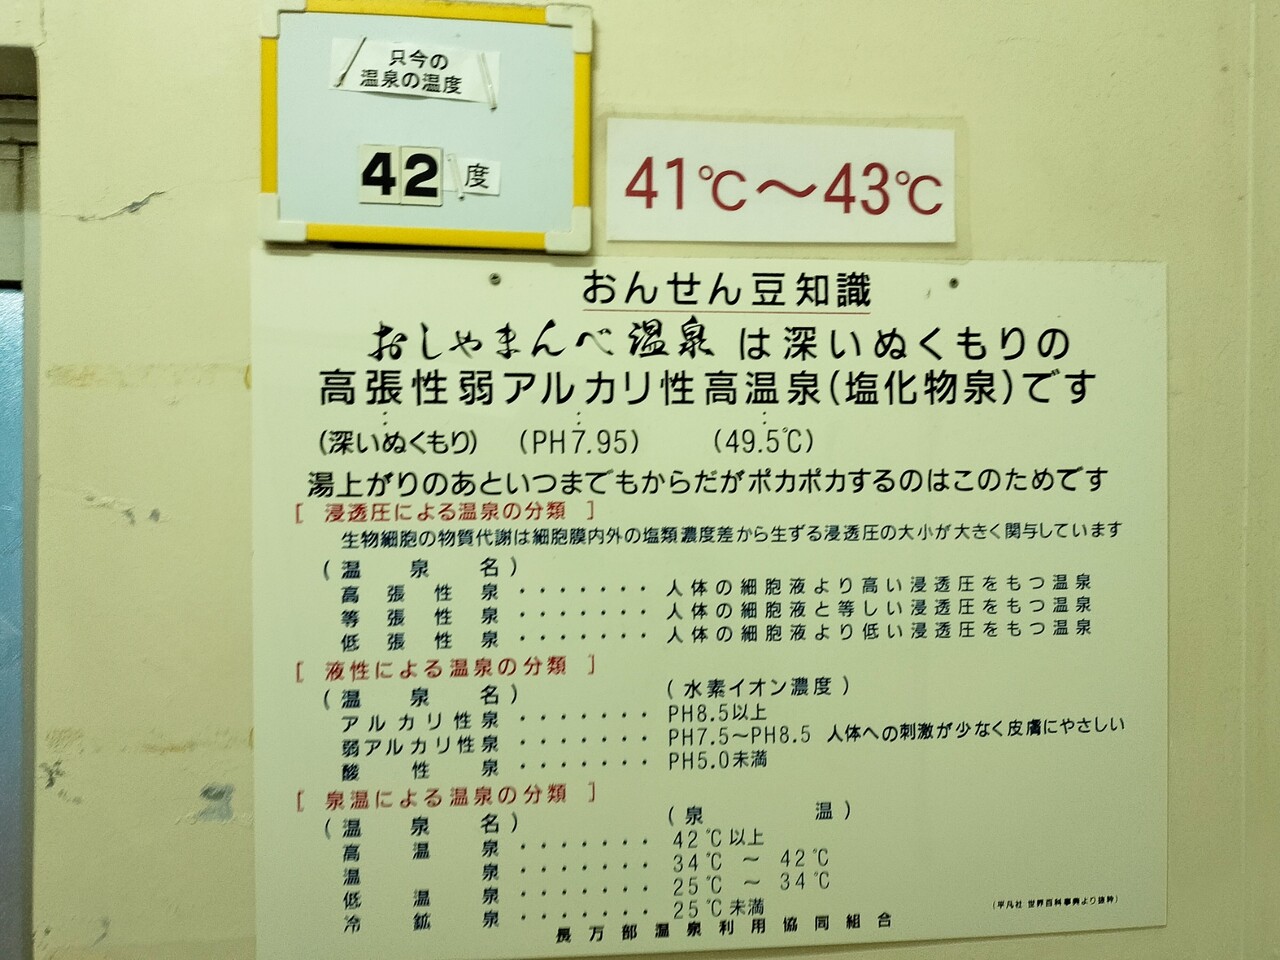 只今の
温泉の温度
42度
41℃～43℃
おんせん豆知識
おしゃまんべ温泉は深いぬくもりの
高張性弱アルカリ性高温泉(塩化物泉)です
(深いぬくもり) (PH7.95) (49.5℃)
湯上がりのあといつまでもからだがポカポカするのはこのためです
[ 浸透圧による温泉の分類 ]
生物細胞の物質代謝は細胞膜内外の塩類濃度差から生ずる浸透圧の大小が大きく関与しています
(温泉名)
高張性泉・・・・・・・人体の細胞液より高い浸透圧をもつ温泉
等張性泉・・・・・・・人体の細胞液と等しい浸透圧をもつ温泉
低張性泉・・・・・・・人体の細胞液より低い浸透圧をもつ温泉
[ 液性による温泉の分類 ]
(温泉名) (水素イオン濃度)
アルカリ性泉・・・・・・・PH8.5以上
弱アルカリ性泉・・・・・・・PH7.5～PH8.5 人体への刺激が少なく皮膚にやさしい
酸性泉・・・・・・・PH5.0未満
[ 泉温による温泉の分類 ]
(温泉名) (泉温)
高温泉・・・・・・・42℃以上
温泉・・・・・・・34℃～42℃
低温泉・・・・・・・25℃～34℃
冷鉱泉・・・・・・・25℃未満
(平凡社 世界百科事典より抜粋)
長万部温泉利用協同組合